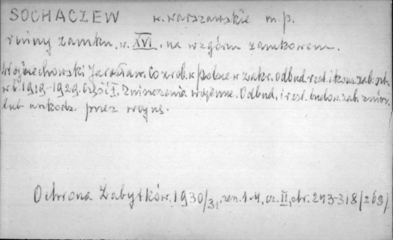 SOCHACZEW w. warszawskie m. p.
ruiny zamku. w. XVI. na wzgórzu zamkowem.
Wojciechowski Jarosław. Co zrob. w Polsce w zakr. odbud. rest. i kons. zab. szt.
w l. 1919-1929 część I. Zniszczenia wojenne. Odbud. i rest. budow. zab. zniszcz.
lub uszkodz. przez wojnę.
Ochrona Zabytków. 1930/31, zesz. 1-4, cz. II, str. 243-318 /269/